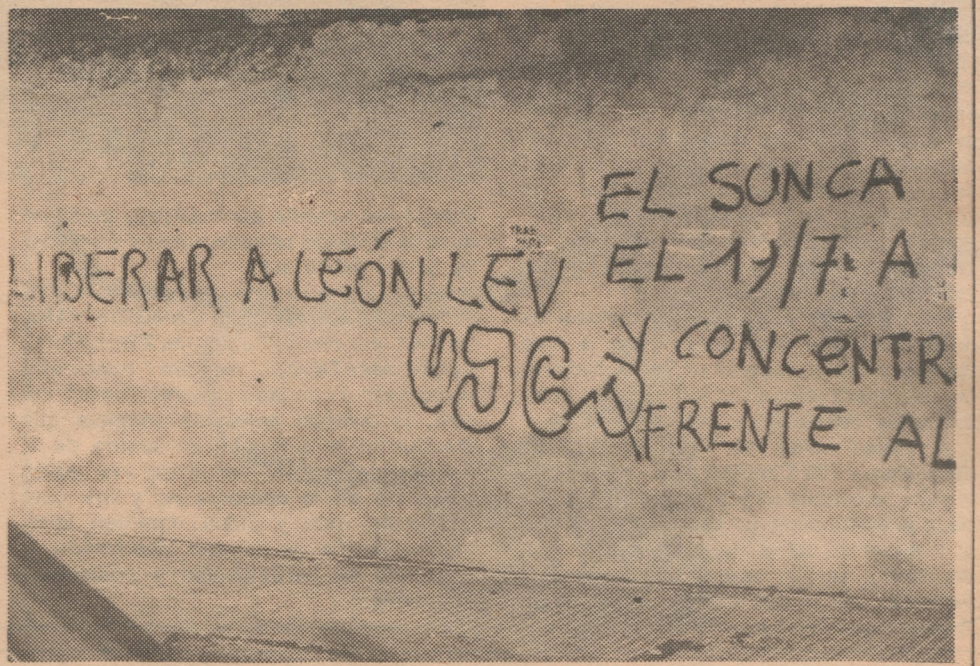 LIBERAR A LEÓN LEV
UJC
EL SUNCA
EL 19/7 A
Y CONCeNTR
FRENTE AL